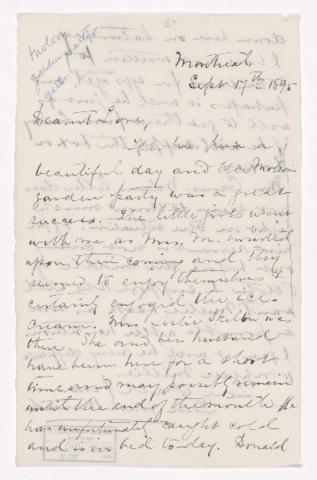 Molson
garden party
girls
Montreal
Sept 17th 1895
Dearest Love,
It has been a
beautiful day and the Molson
garden party was a great
success. The little girls went
with me as Mrs. M. insisted
upon their coming and they
seemed to enjoy themselves &
certainly enjoyed the ice-
creams. Mrs. Leslie Skelton was
there. She and her husband
have been here for a short
time and may possibly remain
until the end of the month. He
has unfortunately caught cold
and is in bed to-day. Donald